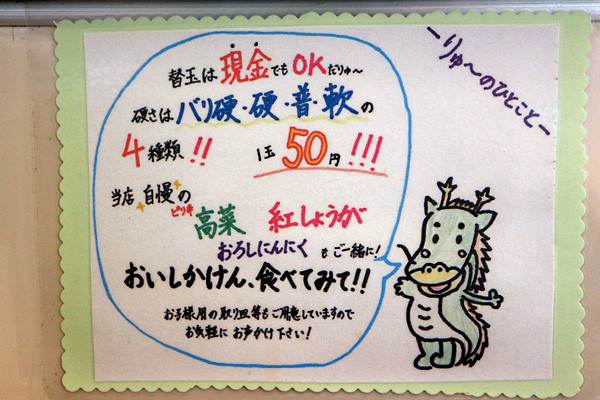 ーりゅ〜のひとことー
替玉は現金でもOKだりゅ〜
硬さはバリ硬・硬・普・軟の
4種類!! 1玉50円!!!
当店自慢の
ピリ辛高菜 紅しょうが
おろしにんにくもご一緒に!
おいしかけん、食べてみて!!
お子様用の取り皿等もご用意していますので
お気軽にお声かけ下さい!